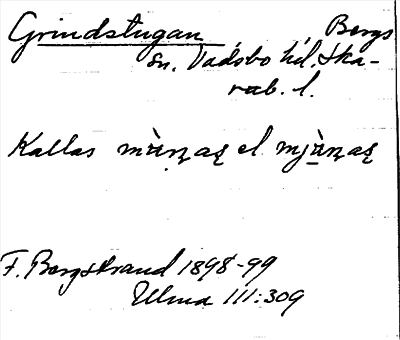 Grindstugan, Bergs
sn. Vadsbo hd. Ska-
rab. l.
Kallas mằṇas el. mjằnas
F. Bergstrand 1898-99
Ulma 111:309